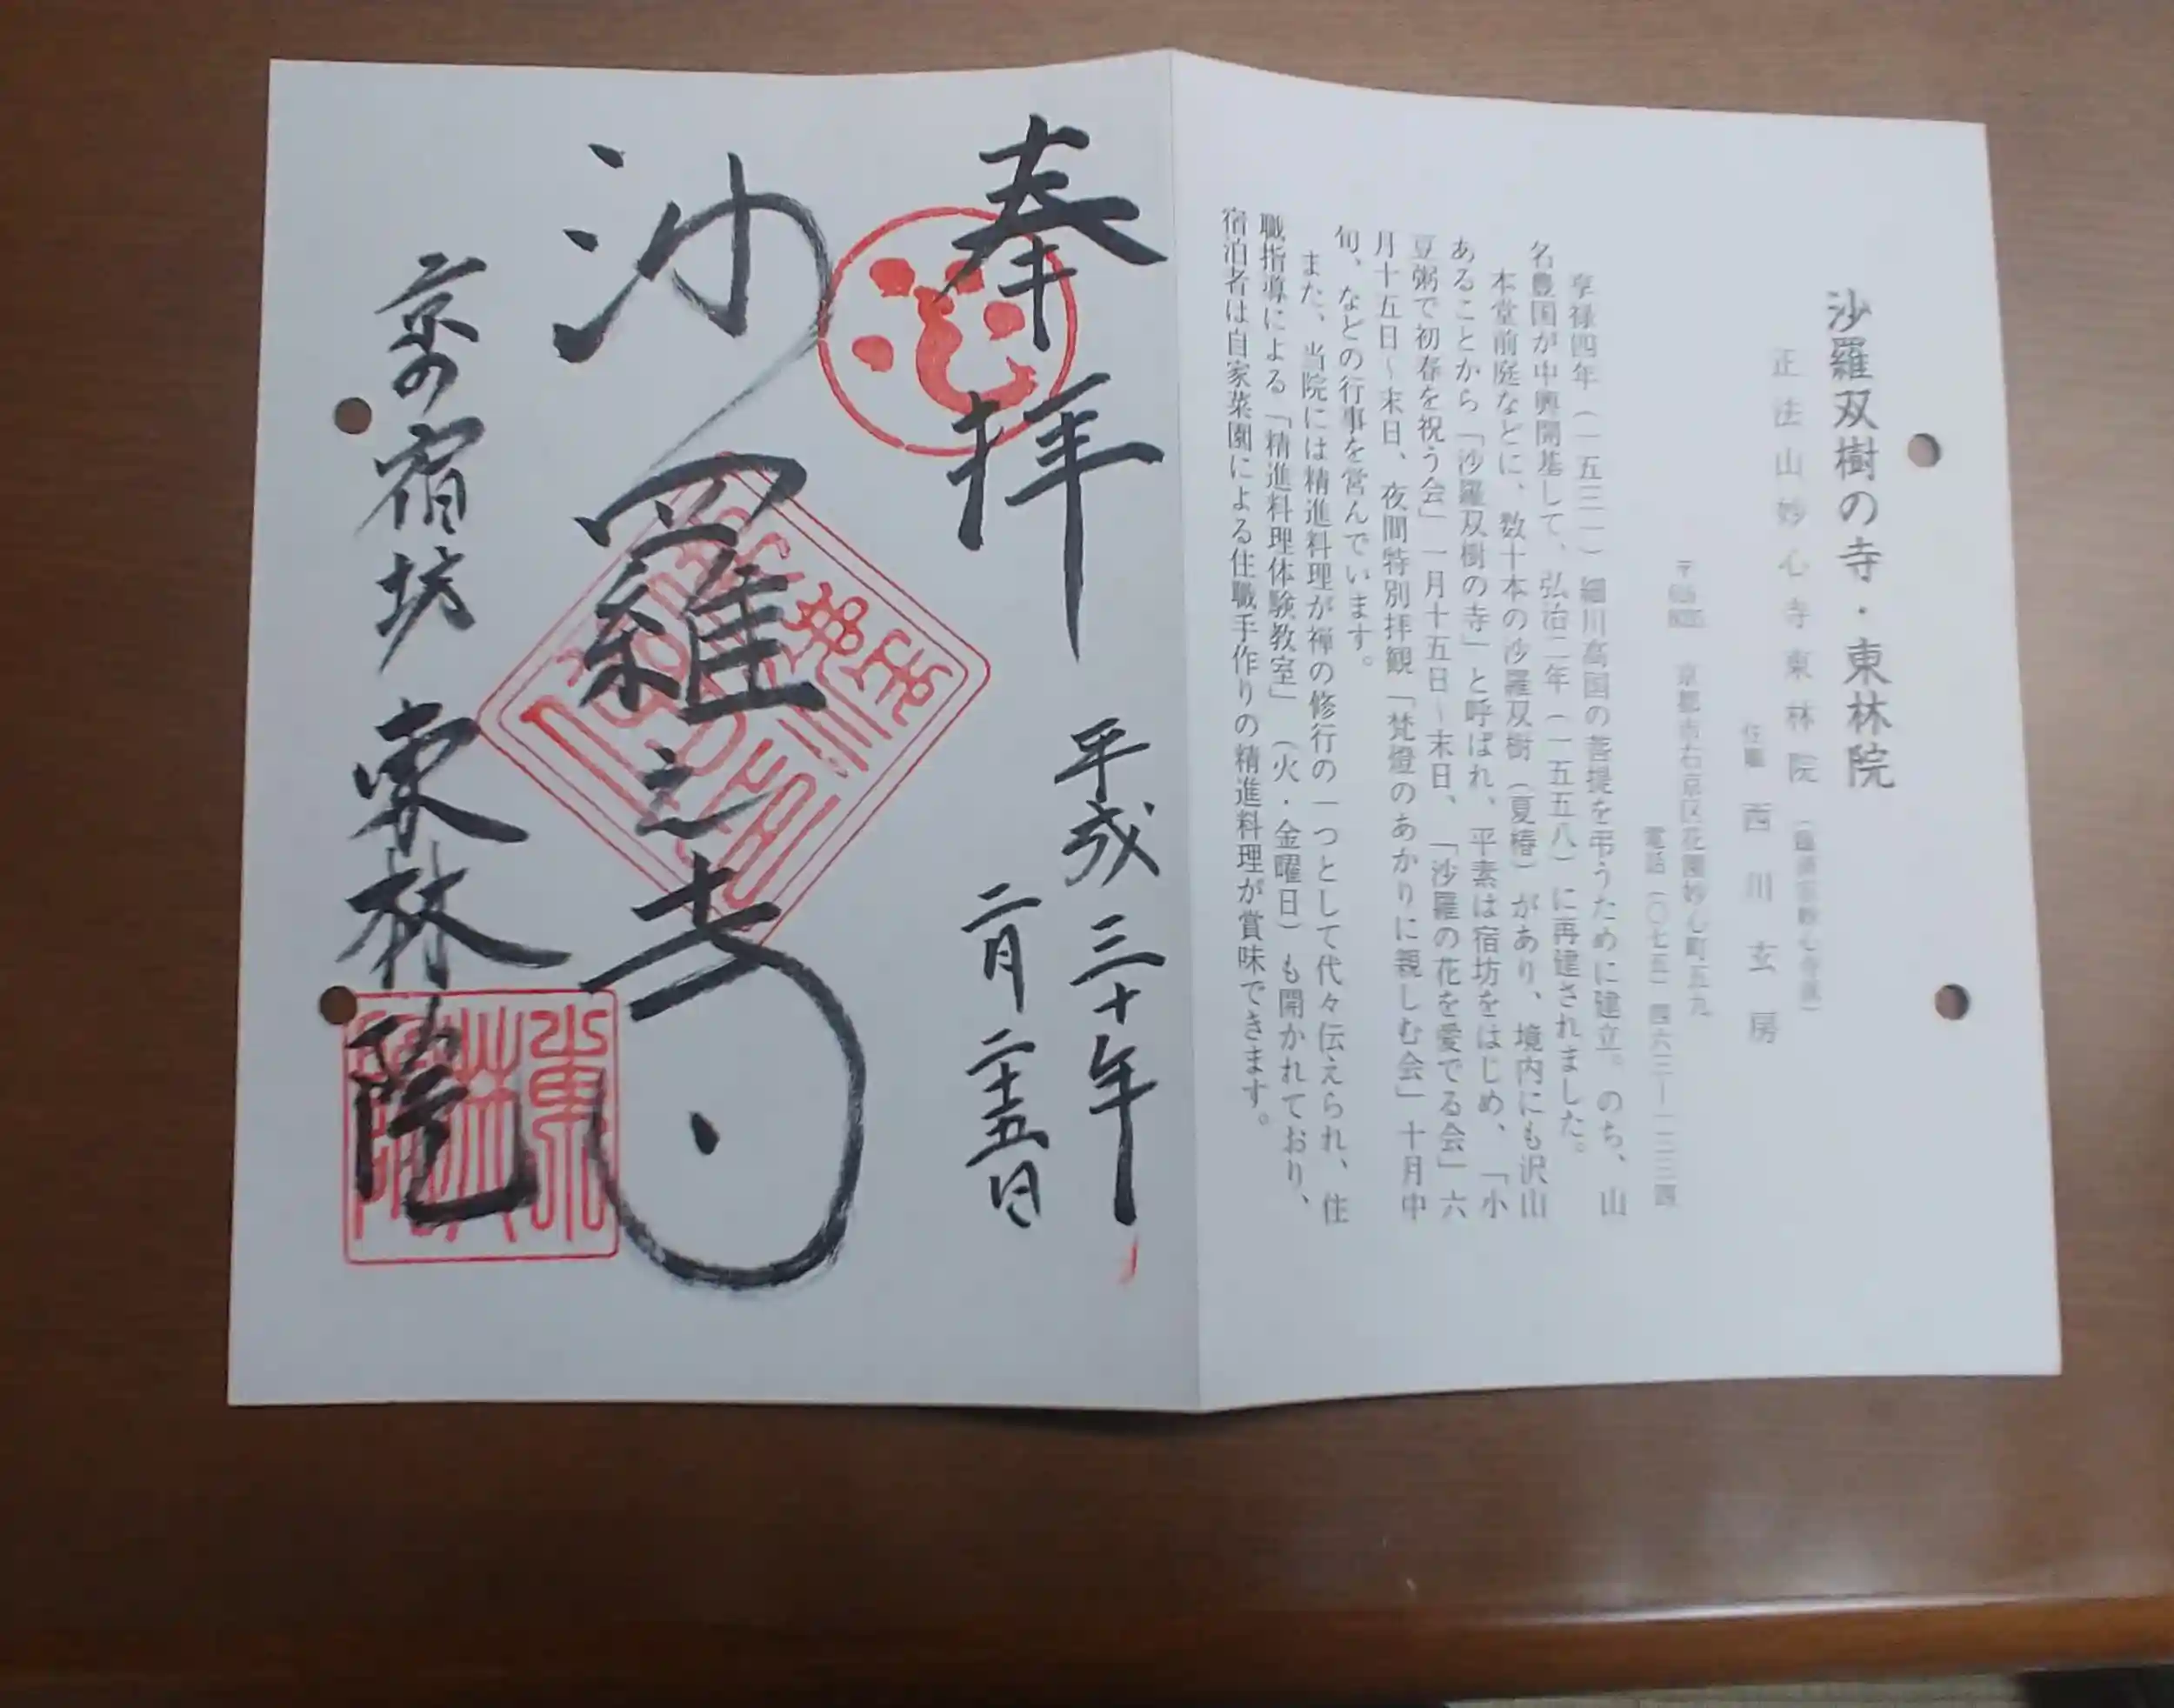 沙羅双樹の寺・東林院
正法山妙心寺東林院(臨済宗妙心寺派)
住職 西川玄房
京都市右京区花園妙心町五九
電話(〇七五)四六三―一三三四
享禄四年(一五三一)細川高国の菩提を弔うために建立。のち、山
名豊国が中興開基して、弘治二年(一五五八)に再建されました。
本堂前庭などに、数十本の沙羅双樹(夏椿)があり、境内にも沢山
あることから「沙羅双樹の寺」と呼ばれ、平素は宿坊をはじめ、「小
豆粥で初春を祝う会」一月十五日~末日、「沙羅の花を愛でる会」六
月十五日~末日、夜間特別拝観「梵燈のあかりに親しむ会」十月中
旬、などの行事を営んでいます。
また、当院には精進料理が禅の修行の一つとして代々伝えられ、住
職指導による「精進料理体験教室」(火・金曜日)も開かれており、
宿泊者は自家菜園による住職手作りの精進料理が賞味できます。
奉拝
平成三十年
二月二十五日
沙羅之寺
京の宿坊 東林院
東林院